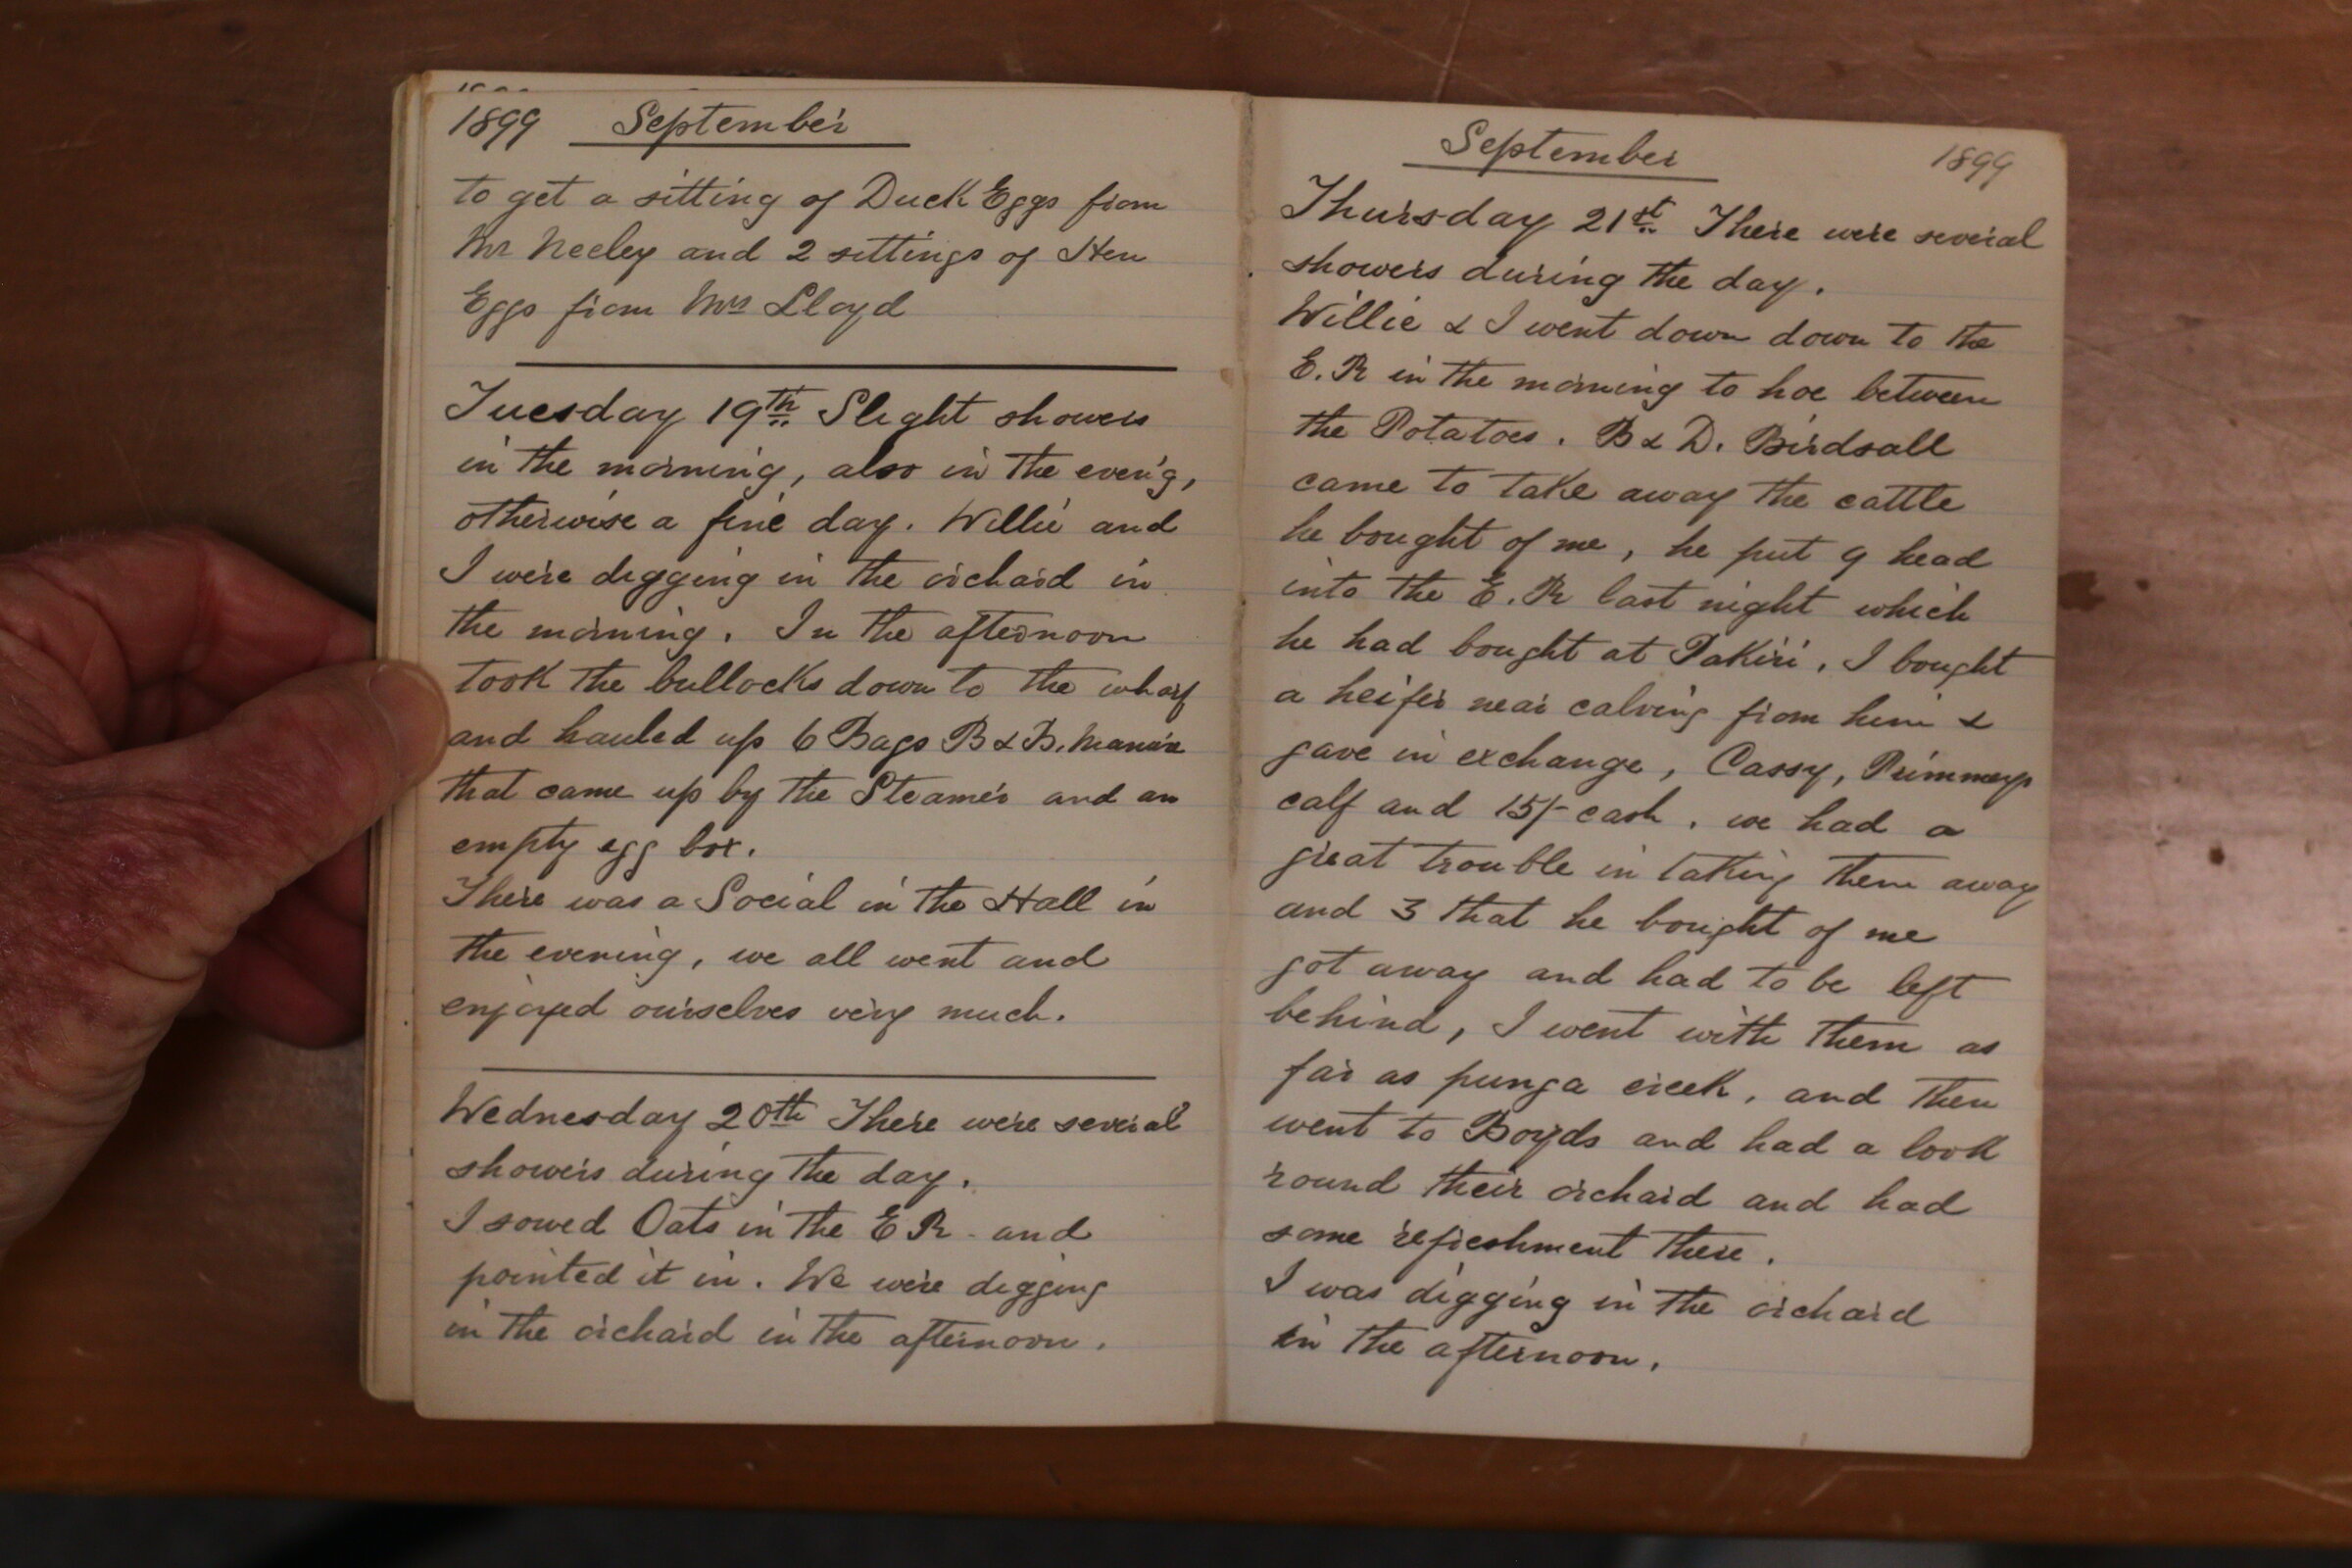 1899 September
to get a sitting of Duck Eggs from
Mr Neeley and 2 sittings of Hen
Eggs from Mrs Lloyd
Tuesday 19th Slight showers
in the morning, also in the even'g,
otherwise a fine day. Willie and
I were digging in the orchard in
the morning. In the afternoon
took the bullocks down to the wharf
and hauled up 6 Bags B & B. Manure
that came up by the Steamer and an
empty egg box.
There was a Social in the Hall in
the evening, we all went and
enjoyed ourselves very much.
Wednesday 20th There were several
showers during the day.
I sowed Oats in the E R - and
pointed it in. We were digging
in the orchard in the afternoon.
September 1899
Thursday 21st There were several
showers during the day.
Willie & I went down down to the
E. R in the morning to hoe between
the Potatoes. B & D. Birdsall
came to take away the cattle
he bought of me, he put 9 head
into the E. R last night which
he had bought at Pakiri. I bought
a heifer near calving from him &
gave in exchange, Cassy, Primmeys
calf and 15/- cash. we had a
great trouble in taking them away
and 3 that he bought of me
got away and had to be left
behind, I went with them as
far as punga creek, and then
went to Boyds and had a look
round their orchard and had
some refreshment there.
I was digging in the orchard
in the afternoon.